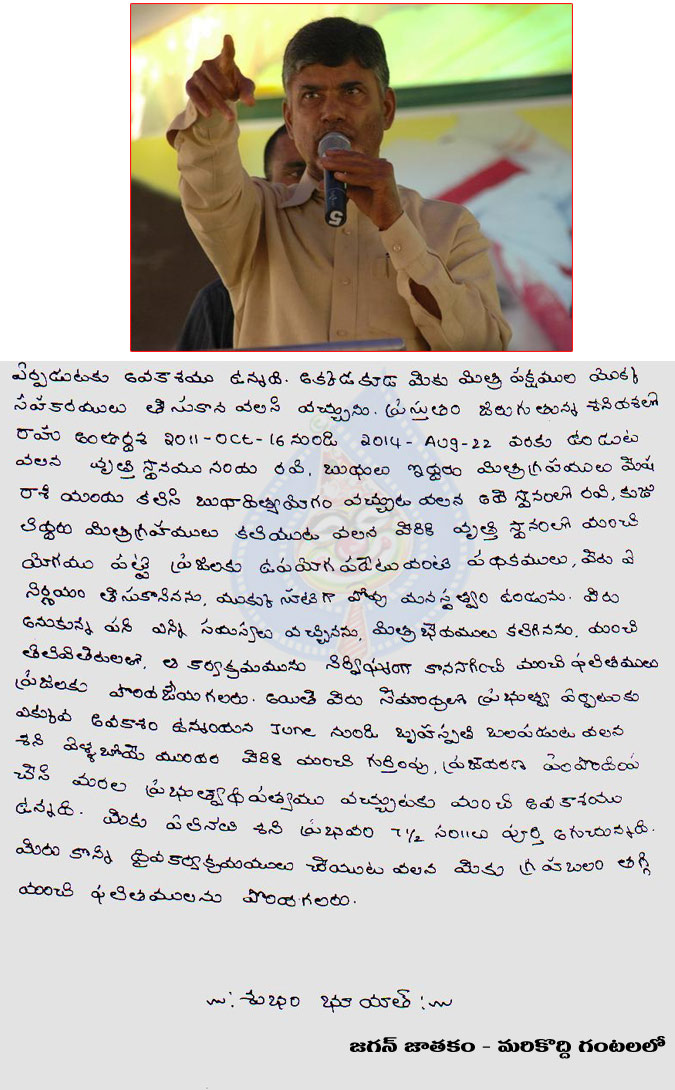 5
ఏర్పడుటకు అవకాశము ఉన్నది. ఒక్కడ కూడ మీకు మిత్ర పక్షముల యొక్క
సహకారములు తీసుకొన వలసి వచ్చును. ప్రస్తుతం జరుగుతున్న శనిదశలో
రాహు అంతర్దశ 2011-OCT-16 నుండి 2014-AUG-22 వరకు ఉండుట
వలన వృత్తి స్థానము నందు రవి, బుధులు ఇద్దరు మిత్రగ్రహములు మేష
రాశి యందు కలిసి బుధాదిత్యయోగం వచ్చుట వలన అదే స్థానంలో రవి, కుజు
లిద్దరు మిత్రగ్రహములు కలియుట వలన వీరికి వృత్తి స్థానంలో మంచి
యోగము పట్టి ప్రజలకు ఉపయోగపడేటువంటి పథకములు, వీరు ఏ
నిర్ణయం తీసుకొనినను, ముక్కు సూటిగా పోవు మనస్తత్వం ఉండును. వీరు
అనుకున్న పని ఎన్ని సమస్యలు వచ్చినను, మిత్ర భేదములు కలిగినను, మంచి
తెలివితేటలతో, ఆ కార్యక్రమమును నిర్విఘ్నంగా కొనసాగించి మంచి ఫలితములు
ప్రజలకు పొందజేయగలరు. అయితే వీరు సీమాంధ్రలో ప్రభుత్వ ఏర్పాటుకు
ఎక్కువ అవకాశం ఉన్నందున JUNE నుండి బృహస్పతి బలపడుట వలన
శని వెళ్ళబోయే ముందర వీరికి మంచి గుర్తింపు, ప్రజాదరణ పెంపొందింప
చేసి మరల ప్రభుత్వాధిపత్యము వచ్చుటకు మంచి అవకాశము
ఉన్నది. మీకు ఏలినాటి శని ప్రభావం 7 1/2 సం॥లు పూర్తి అగుచున్నది.
మీరు కొన్ని దైవకార్యక్రమములు చేయుట వలన మీకు గ్రహబలం తగ్గి
మంచి ఫలితములను పొందగలరు.
~:శుభం భూయాత్:~
జగన్ జాతకం - మరికొద్ది గంటలలో